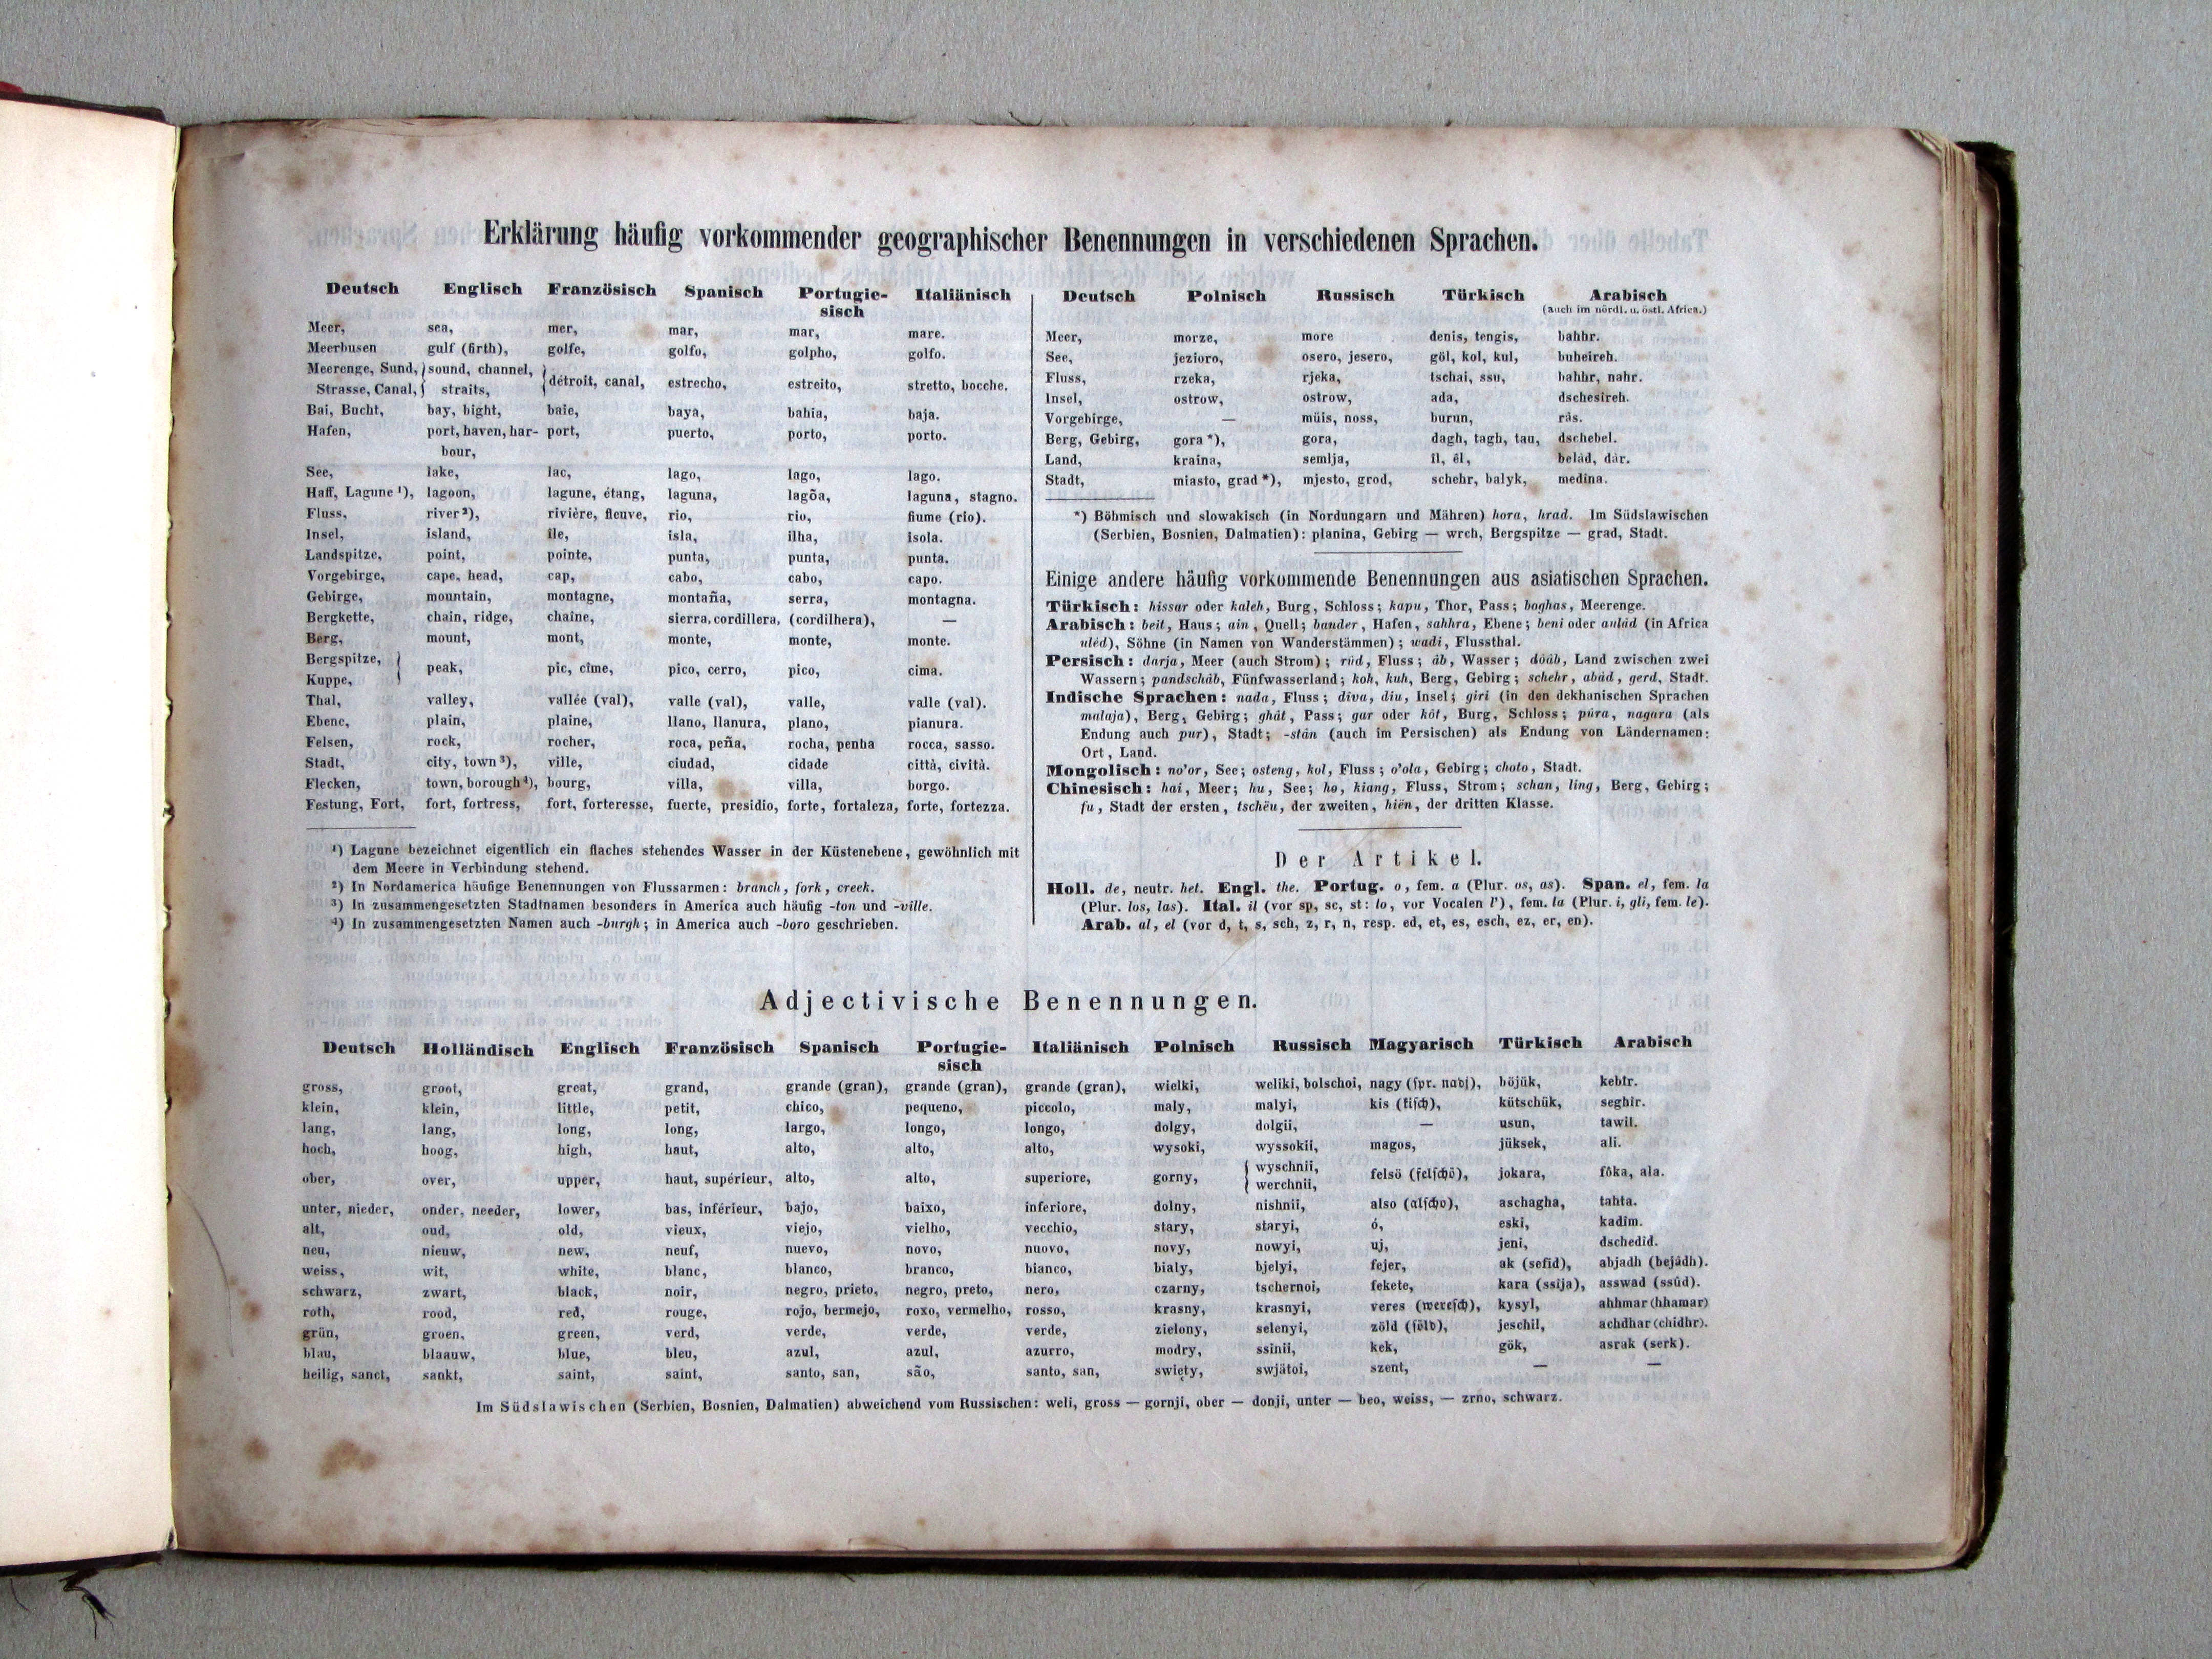 Erklärung häufig vorkommender geographischer Benennungen in verschiedenen Sprachen.
Deutsch Englisch Französisch Spanisch Portugie- Italiänisch
sisch
Meer, sea, mer, mar, mar, mare.
Meerbusen gulf (firth), golfe, golfo, golpho, golfo.
Meerenge, Sund, sound, channel,
Strasse, Canal, straits, détroit, canal, estrecho, estreito, stretto, bocche.
Bai, Bucht, bay, bight, baie, baya, bahia, baja.
Hafen, port, haven, har- port, puerto, porto, porto.
bour,
See, lake, lac, lago, lago, lago.
Haff, Lagune ¹), lagoon, lagune, étang, laguna, lagõa, laguna, stagno.
Fluss, river ²), rivière, fleuve, rio, rio, fiume (rio).
Insel, island, île, isla, ilha, isola.
Landspitze, point, pointe, punta, punta, punta.
Vorgebirge, cape, head, cap, cabo, cabo, capo.
Gebirge, mountain, montagne, montaña, serra, montagna.
Bergkette, chain, ridge, chaîne, sierra, cordillera, (cordilhera), —
Berg, mount, mont, monte, monte, monte.
Bergspitze,
Kuppe, peak, pic, cîme, pico, cerro, pico, cima.
Thal, valley, vallée (val), valle (val), valle, valle (val).
Ebene, plain, plaine, llano, llanura, plano, pianura.
Felsen, rock, rocher, roca, peña, rocha, penha rocca, sasso.
Stadt, city, town ³), ville, ciudad, cidade città, cività.
Flecken, town, borough ⁴), bourg, villa, villa, borgo.
Festung, Fort, fort, fortress, fort, forteresse, fuerte, presidio, forte, fortaleza, forte, fortezza.
¹) Lagune bezeichnet eigentlich ein flaches stehendes Wasser in der Küstenebene, gewöhnlich mit
dem Meere in Verbindung stehend.
²) In Nordamerica häufige Benennungen von Flussarmen: branch, fork, creek.
³) In zusammengesetzten Stadtnamen besonders in America auch häufig -ton und -ville.
⁴) In zusammengesetzten Namen auch -burgh; in America auch -boro geschrieben.
Deutsch Polnisch Russisch Türkisch Arabisch
(auch im nördl. u. östl. Africa.)
Meer, morze, more denis, tengis, bahhr.
See, jezioro, osero, jesero, göl, kol, kul, buheireh.
Fluss, rzeka, rjeka, tschai, ssu, bahhr, nahr.
Insel, ostrow, ostrow, ada, dschesireh.
Vorgebirge, — müis, noss, burun, râs.
Berg, Gebirg, gora *), gora, dagh, tagh, tau, dschebel.
Land, kraina, semlja, îl, êl, belâd, dâr.
Stadt, miasto, grad *), mjesto, grod, schehr, balyk, medina.
*) Böhmisch und slowakisch (in Nordungarn und Mähren) hora, hrad. Im Südslawischen
(Serbien, Bosnien, Dalmatien): planina, Gebirg — wrch, Bergspitze — grad, Stadt.
Einige andere häufig vorkommende Benennungen aus asiatischen Sprachen.
Türkisch: hissar oder kaleh, Burg, Schloss; kapu, Thor, Pass; boghas, Meerenge.
Arabisch: beit, Haus; ain, Quell; bander, Hafen, sahhra, Ebene; beni oder aulâd (in Africa
ulêd), Söhne (in Namen von Wanderstämmen); wadi, Flussthal.
Persisch: darja, Meer (auch Strom); rûd, Fluss; âb, Wasser; dôâb, Land zwischen zwei
Wassern; pandschâb, Fünfwasserland; koh, kuh, Berg, Gebirg; schehr, abâd, gerd, Stadt.
Indische Sprachen: nada, Fluss; diva, diu, Insel; giri (in den dekhanischen Sprachen
malaja), Berg, Gebirg; ghât, Pass; gar oder kôt, Burg, Schloss; pûra, nagara (als
Endung auch pur), Stadt; -stân (auch im Persischen) als Endung von Ländernamen:
Ort, Land.
Mongolisch: no'or, See; osteng, kol, Fluss; o'ola, Gebirg; choto, Stadt.
Chinesisch: hai, Meer; hu, See; ho, kiang, Fluss, Strom; schan, ling, Berg, Gebirg;
fu, Stadt der ersten, tschëu, der zweiten, hiën, der dritten Klasse.
Der Artikel.
Holl. de, neutr. het. Engl. the. Portug. o, fem. a (Plur. os, as). Span. el, fem. la
(Plur. los, las). Ital. il (vor sp, sc, st: lo, vor Vocalen l'), fem. la (Plur. i, gli, fem. le).
Arab. al, el (vor d, t, s, sch, z, r, n, resp. ed, et, es, esch, ez, er, en).
Adjectivische Benennungen.
Deutsch Holländisch Englisch Französisch Spanisch Portugie- Italiänisch Polnisch Russisch Magyarisch Türkisch Arabisch
sisch
gross, groot, great, grand, grande (gran), grande (gran), grande (gran), wielki, weliki, bolschoi, nagy (spr. nadj), böjük, kebîr.
klein, klein, little, petit, chico, pequeno, piccolo, maly, malyi, kis (kisch), kütschük, seghîr.
lang, lang, long, long, largo, longo, longo, dolgy, dolgii, — usun, tawil.
hoch, hoog, high, haut, alto, alto, alto, wysoki, wyssokii, magos, jüksek, ali.
ober, over, upper, haut, supérieur, alto, alto, superiore, gorny, wyschnii, werchnii, felsö (felschö), jokara, fôka, ala.
unter, nieder, onder, needer, lower, bas, inférieur, bajo, baixo, inferiore, dolny, nishnii, also (alscho), aschagha, tahta.
alt, oud, old, vieux, viejo, vielho, vecchio, stary, staryi, ó, eski, kadim.
neu, nieuw, new, neuf, nuevo, novo, nuovo, novy, nowyi, uj, jeni, dschedid.
weiss, wit, white, blanc, blanco, branco, bianco, bialy, bjelyi, fejer, ak (sefid), abjadh (bejâdh).
schwarz, zwart, black, noir, negro, prieto, negro, preto, nero, czarny, tschernoi, fekete, kara (ssija), asswad (ssûd).
roth, rood, red, rouge, rojo, bermejo, roxo, vermelho, rosso, krasny, krasnyi, veres (weresch), kysyl, ahhmar (hhamar)
grün, groen, green, verd, verde, verde, verde, zielony, selenyi, zöld (söld), jeschil, achdhar (chidhr).
blau, blaauw, blue, bleu, azul, azul, azurro, modry, ssinii, kek, gök, asrak (serk).
heilig, sanct, sankt, saint, saint, santo, san, são, santo, san, święty, swjätoi, szent, — —
Im Südslawischen (Serbien, Bosnien, Dalmatien) abweichend vom Russischen: weli, gross — gornji, ober — donji, unter — beo, weiss, — zrno, schwarz.